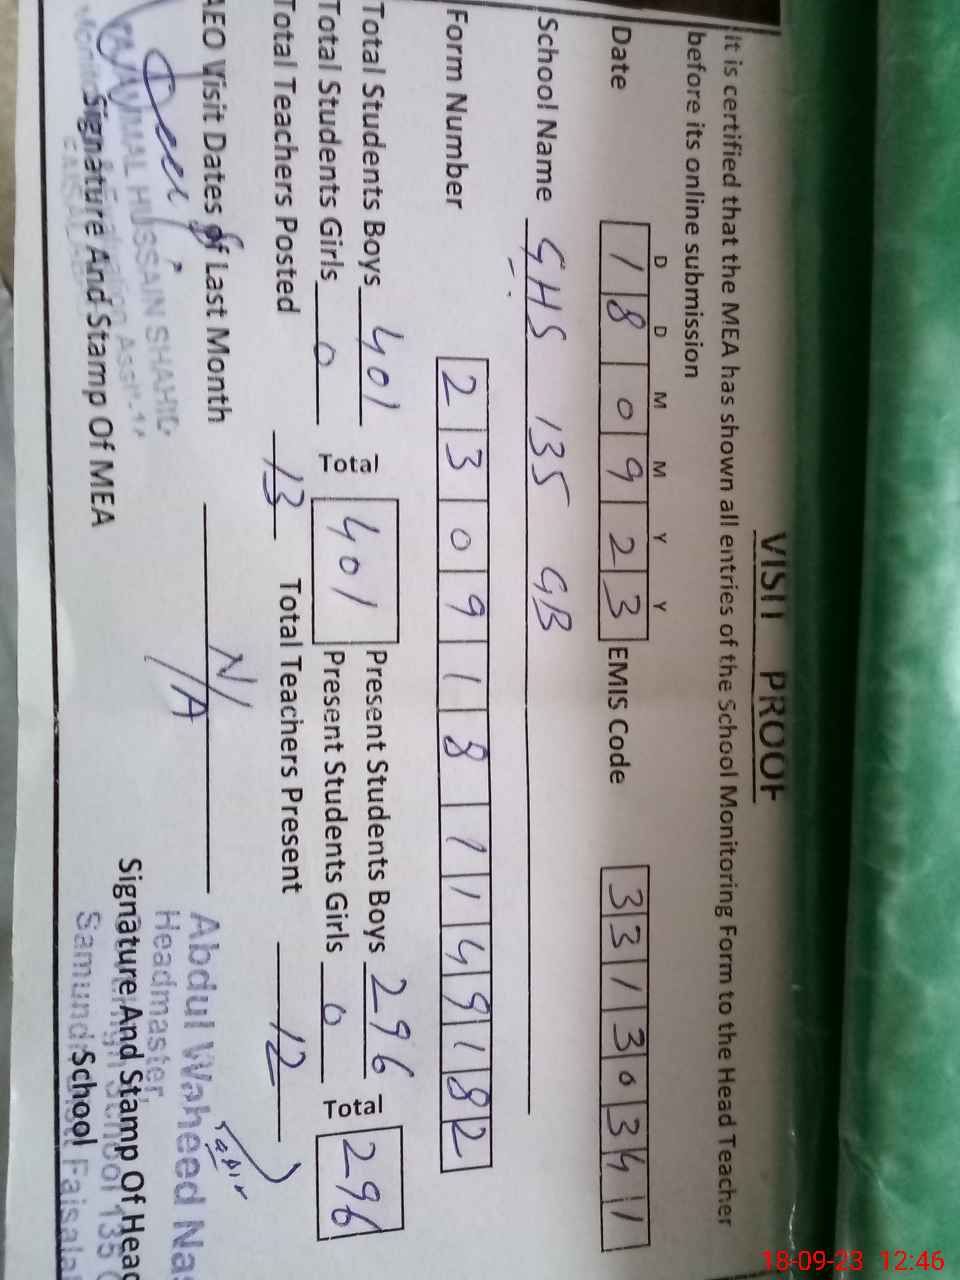 VISIT PROOF
It is certified that the MEA has shown all entries of the School Monitoring Form to the Head Teacher
before its online submission
D D M M Y Y
Date 18 09 23 EMIS Code 33130341
School Name GHS 135 GB
Form Number 2309181149182
Total Students Boys 401 Total 401 Present Students Boys 296 Total 296
Total Students Girls 0 Present Students Girls 0
Total Teachers Posted 13 Total Teachers Present 12
AEO Visit Dates of Last Month N/A
Abdul Waheed Nas
AJMAL HUSSAIN SHAHID
Headmaster
Signature And Stamp Of MEA
Signature And Stamp Of Head
School
18-09-23 12:46